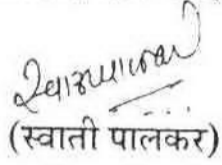 (स्वाती पालकर)